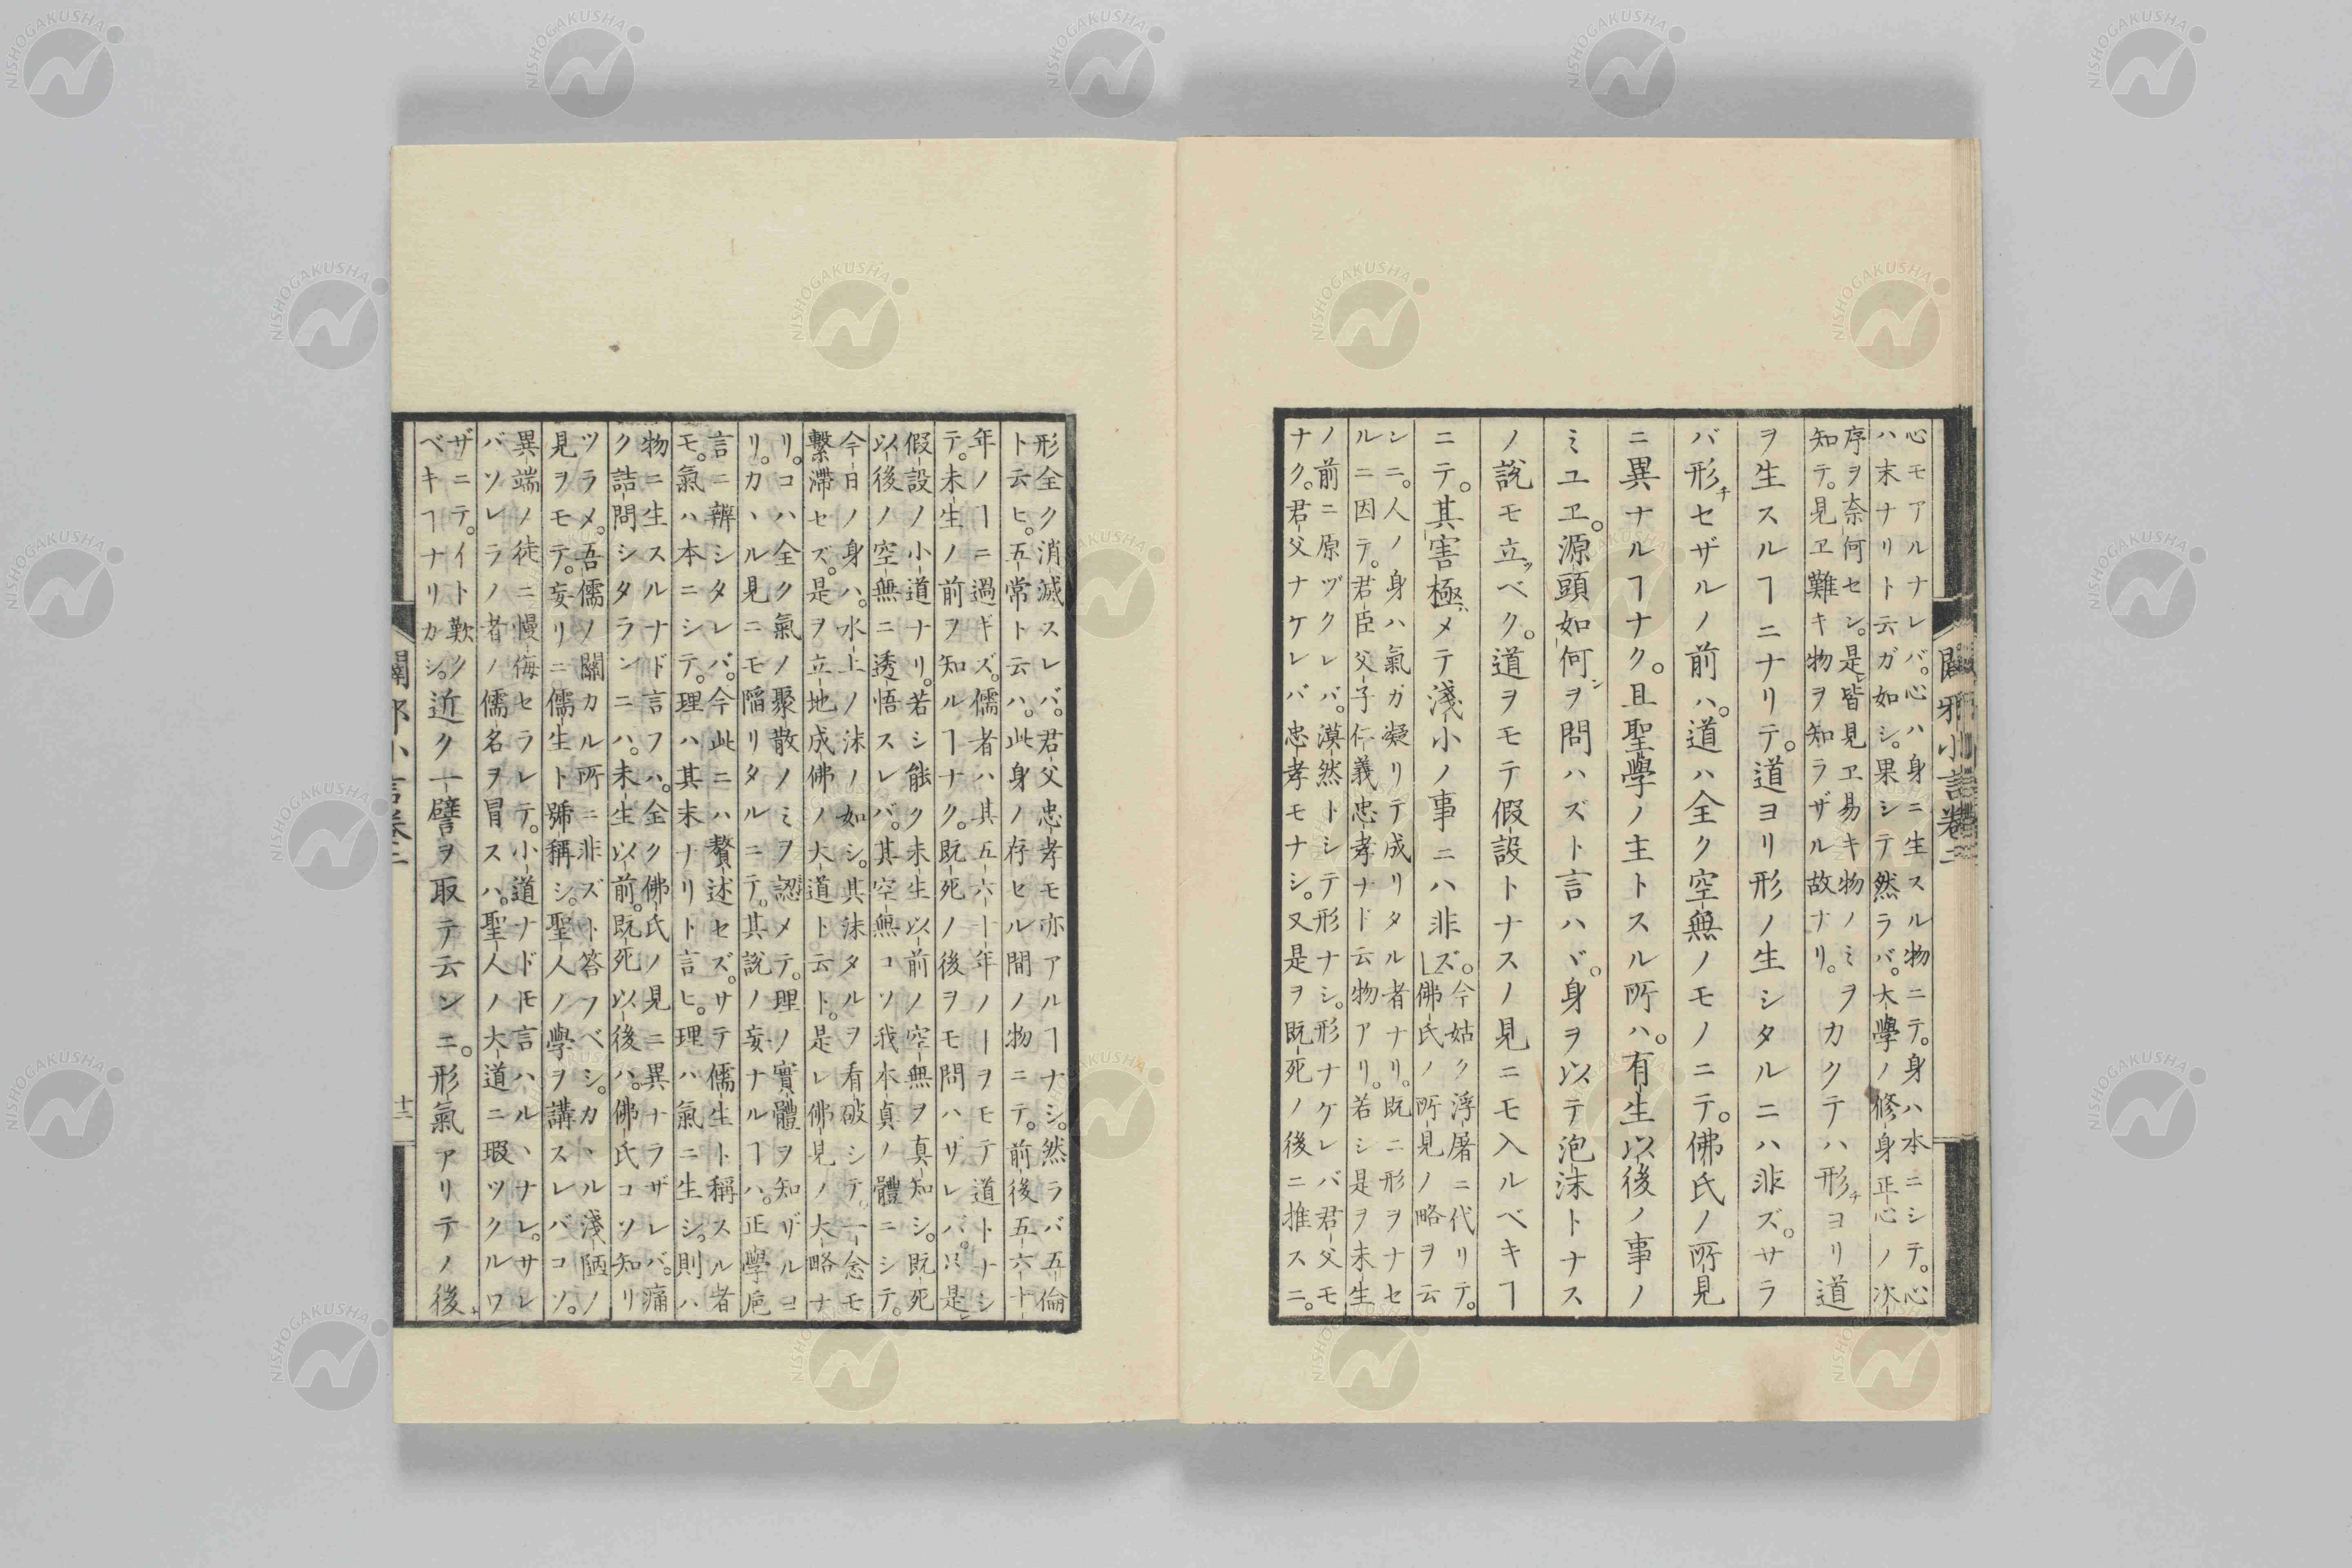 闢邪小言卷二
心モアルナレバ。心ハ身ニ生スル物ニテ。身ハ本ニシテ。心
ハ末ナリト云ガ如シ。果シテ然ラバ。大學ノ修身正心ノ次
序ヲ奈何セン。是レ皆見ヱ易キ物ノミヲ
知テ。見ヱ難キ物ヲ知ラザル故ナリ。
カクテハ形チヨリ道
ヲ生スルヿニナリテ。道ヨリ形ノ生シタルニハ非ズ。サラ
バ形チセザルノ前ハ。道ハ全ク空無ノモノニテ。佛氏ノ所見
ニ異ナルヿナク。且聖學ノ主トスル所ハ。有生以後ノ事ノ
ミユヱ。源頭如何ンヲ問ハズト言ハヾ。身ヲ以テ泡沫トナス
ノ說モ立ツベク。道ヲモテ假設トナスノ見ニモ入ルベキヿ
ニテ。其害極メテ淺小ノ事ニハ非ズ。
今姑ク浮屠ニ代リテ。
佛氏ノ所見ノ略ヲ云
ンニ。人ノ身ハ氣ガ凝リテ成リタル者ナリ。既ニ形ヲナセ
ルニ因テ。君臣父子仁義忠孝ナド云物アリ。若シ是ヲ未生
ノ前ニ原ヅクレバ。漠然トシテ形ナシ。形ナケレバ君父モ
ナク。君父ナケレバ忠孝モナシ。又是ヲ既死ノ後ニ推スニ。
形全ク消滅スレバ。君父忠孝モ亦アルヿナシ。然ラバ五倫
ト云ヒ。五常ト云ハ。此身ノ存セル間ノ物ニテ。前後五六十
年ノヿニ過ギズ。儒者ハ其五六十年ノヿヲモテ道トナシ
テ。未生ノ前ヲ知ルヿナク。既死ノ後ヲモ問ハザレバ。只是レ
假設ノ小道ナリ。若シ能ク未生以前ノ空無ヲ真知シ。既死
以後ノ空無ニ透悟スレバ。其空無コソ我本真ノ體ニシテ。
今日ノ身ハ。水上ノ沫ノ如シ。其沫タルヲ看破シテ。一念モ
繫滯セズ。是ヲ立地成佛ノ大道ト云ト。是レ佛見ノ大略ナ
リ。コハ全ク氣ノ聚散ノミヲ認メテ。理ノ實體ヲ知ザルヨ
リ。カヽル見ニモ陷リタルニテ。其說ノ妄ナルヿハ。正學巵
言ニ辨シタレバ。今此ニハ贅述セズ。サテ儒生ト稱スル者
モ。氣ハ本ニシテ。理ハ其末ナリト言ヒ。理ハ氣ニ生シ。則ハ
物ニ生スルナド言フハ。全ク佛氏ノ見ニ異ナラザレバ。痛
ク詰問シタランニハ。未生以前。既死以後ハ。佛氏コソ知リ
ツラメ。吾儒ノ關カル所ニ非ズト答フベシ。カヽル淺陋ノ
見ヲモテ。妄リニ儒生ト號稱シ。聖人ノ學ヲ講スレバコソ。
異端ノ徒ニ慢侮セラレテ。小道ナドモ言ハルヽナレ。サレ
バソレラノ者ノ儒名ヲ冒スハ。聖人ノ大道ニ瑕ツクルワ
ザニテ。イト歎ク
ベキヿナリカシ。
近ク一譬ヲ取テ云ンニ。形氣アリテノ後
闢邪小言卷二
十二
NISHOGAKUSHA